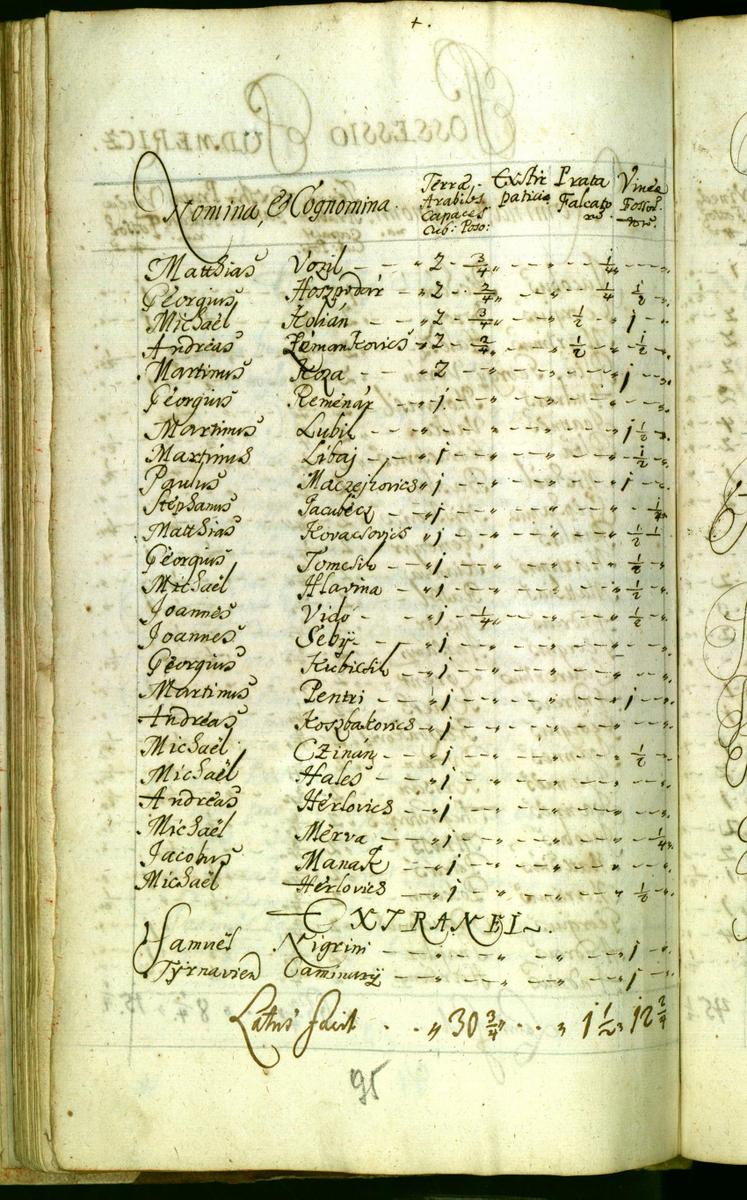 Nomina, & Cognomina. Terræ Arabiles Capaces Cub: Poso: Exstirpatitiæ Prata Falcatorum Vineæ Fossorum
Matthias Vozil „ 2 3/4 „ „ 1/4 „
Georgius Hoszpodár „ 2 2/4 „ „ 1/4 1/2 „
Michaël Holián „ 2 3/4 „ „ 1/2 „ j „
Andreas Zemankovics „ 2 2/4 „ 1/2 „ 1/2 „
Martinus Koza „ 2 „ „ j „
Georgius Remenár „ j „ „ „
Martinus Lubil „ j „ „ j 1/2 „
Martinus Libaj „ j „ „ 1/2 „
Paulus Maczejkovics „ j „ „ j „
Stephanus Jacubecz „ j „ „ 1/4
Matthias Kovacsovics „ j „ „ 1/2
Georgius Tomcsik „ j „ „ 1/2 „
Michaël Hlavina „ j „ „ 1/2 „
Joannes Vidó „ j 1/4 „ „ 1/2 „
Joannes Sebÿ „ j „ „ „
Georgius Kubicsik „ j „ „ „
Martinus Pentri „ j „ „ j „
Andreas Koszbakovics „ j „ „ „
Michaël Czinán „ j „ „ 1/2 „
Michaël Hales „ j „ „ „
Andreas Herlovics „ j „ „ „
Michaël Merva „ j „ „ 1/4 „
Jacobus Manak „ j „ „ „
Michaël Herlovics „ j „ „ 1/2 „
EXTRANEI
Samuel Nigrini „ „ „ j „
Tÿrnavien Caminarÿ „ „ „ j „
Latus facit „ 30 3/4 „ „ 1 1/2 „ 12 2/4
95